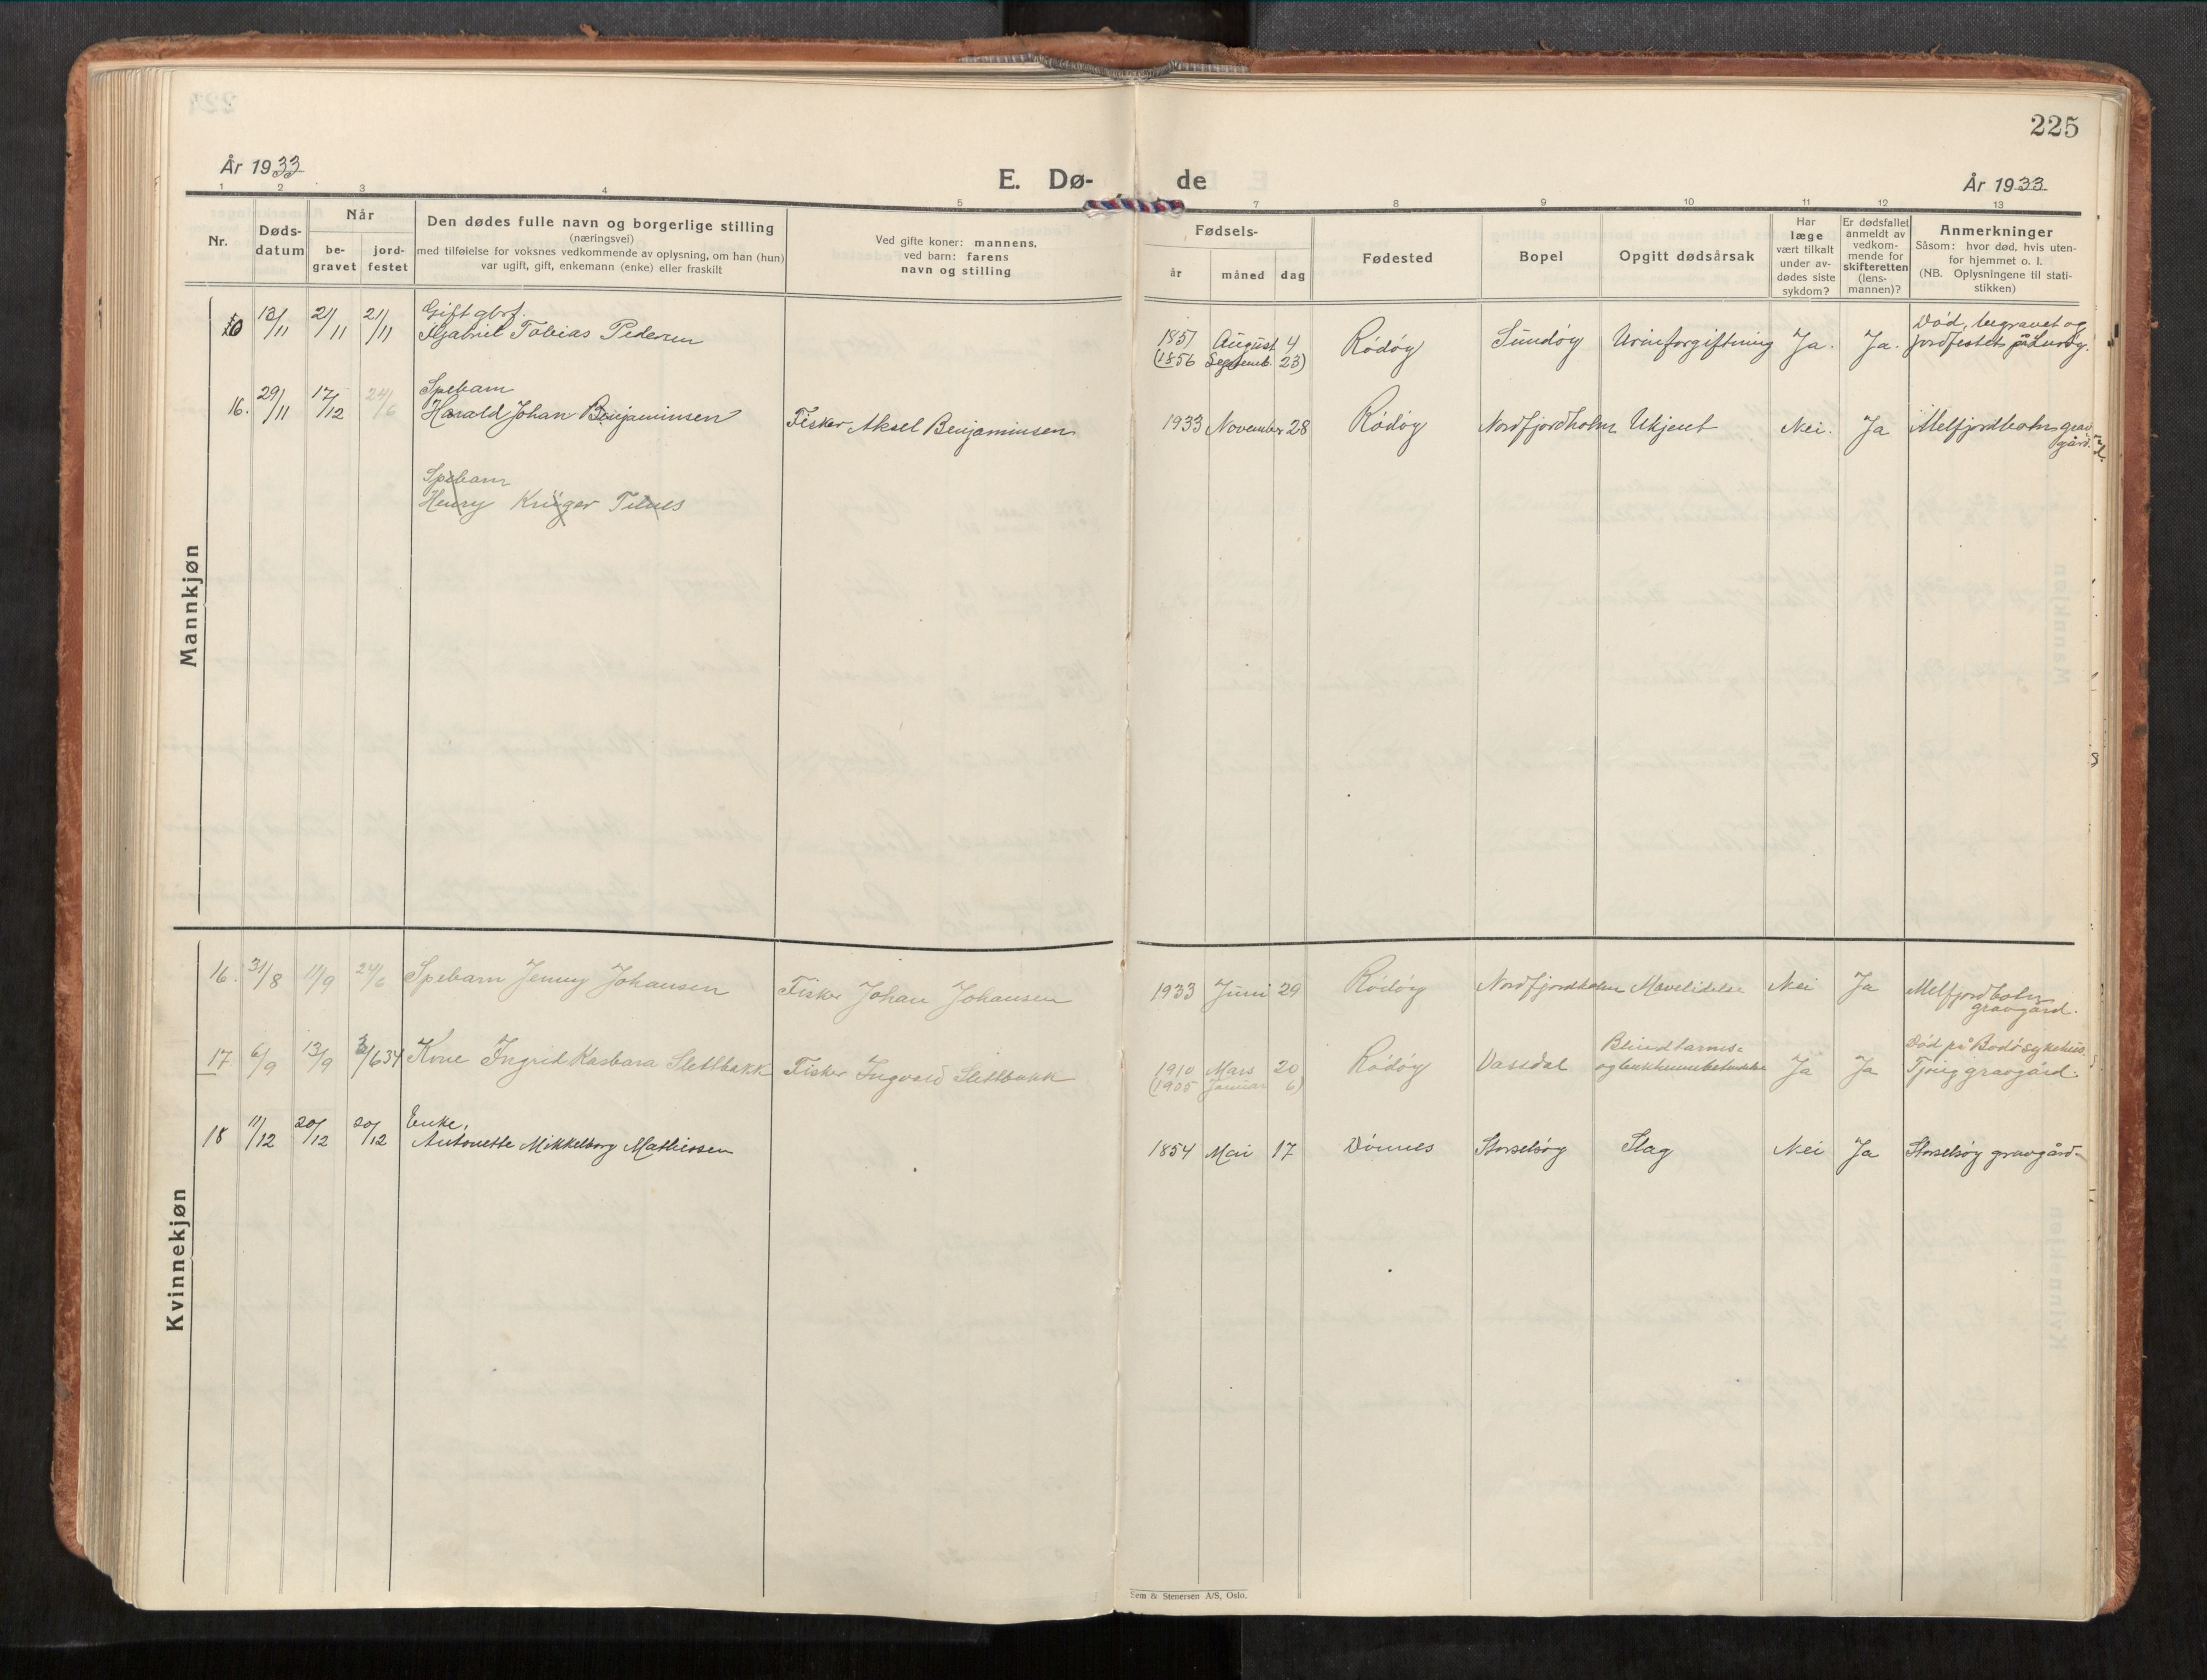 225
År 1933
E. Dø- de
År 1933
1 2 3 4 5 7 8 9 10 11 12 13
Nr.
Døds-
datum
Når
be-
gravet
jord-
festet
Den dødes fulle navn og borgerlige stilling
(næringsvei)
med tilføielse for voksnes vedkommende av oplysning, om han (hun)
var ugift, gift, enkemann (enke) eller fraskilt
Ved gifte koner: mannens,
ved barn: farens
navn og stilling
Fødsels-
år måned dag
Fødested
Bopel
Opgitt dødsårsak
Har
læge
vært tilkalt
under av-
dødes siste
sykdom?
Er dødsfallet
anmeldt av
vedkom-
mende for
skifteretten
(lens-
mannen)?
Anmerkninger
Såsom: hvor død, hvis uten-
for hjemmet o. l.
(NB. Oplysningene til stati-
stikken)
Mannkjøn
13/11 21/11 21/11 Gift gbrf.
Gabriel Tobias Pedersen 1857 August 4 Rödöy Sundöy Urinforgiftning Ja. Ja. Död, begravet og
(1856 Septemb. 23) jordfestet på Luröy.
16. 29/11 17/12 24/6 Spebarn
Harald Johan Benjaminsen Fisker Aksel Benjaminsen 1933 November 28 Rödöy Nordfjordholm Ukjent Nei. Ja Melfjordbotn grav
gård.
Spebarn
Henry Krüger
Kvinnekjøn
16. 31/8 11/9 24/6 Spebarn Jenny Johansen Fisker Johan Johansen 1933 Juni 29 Rödöy Nordfjordholm Mavelidelse Nei Ja Melfjordbotn
gravgård.
17 6/9 13/9 3/6 34 Kone Ingrid Kasbara Slettbakk Fisker Ingvald Slettbakk 1910 Mars 20 Rödöy Vassdal Blindtarms-
og bukhinnebetendelse Ja Ja Död på Bodö sykehus
(1905 Januar 6) Tjong gravgård.
18 11/12 20/12 20/12 Enke,
Antonette Mikkelborg Mathiessen 1854 Mai 17 Dönnes Storselsöy Slag Nei Ja Storselsöy gravgård.
Sem & Stenersen A/S, Oslo.